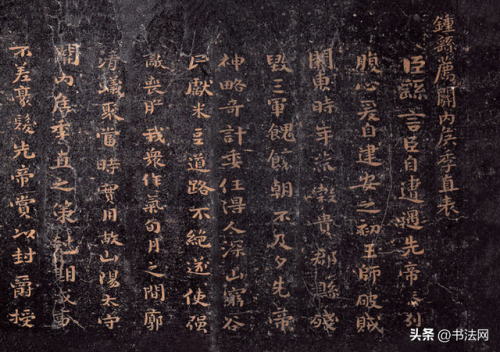 鍾繇薦關內侯季直表
臣繇言臣自遭遇先帝忝列
腹心爰自建安之初王師破賊
關東時年荒穀貴郡縣殘
毀三軍餽饟朝不及夕先帝
神略奇計委任得人深山窮谷
民獻米豆道路不絕遂使强
敵喪膽我衆作氣旬月之間廓
清蟻聚當時實用故山陽太守
關內侯季直之策尅期成事
不差豪髮先帝賞以封爵授
头条 @书法网